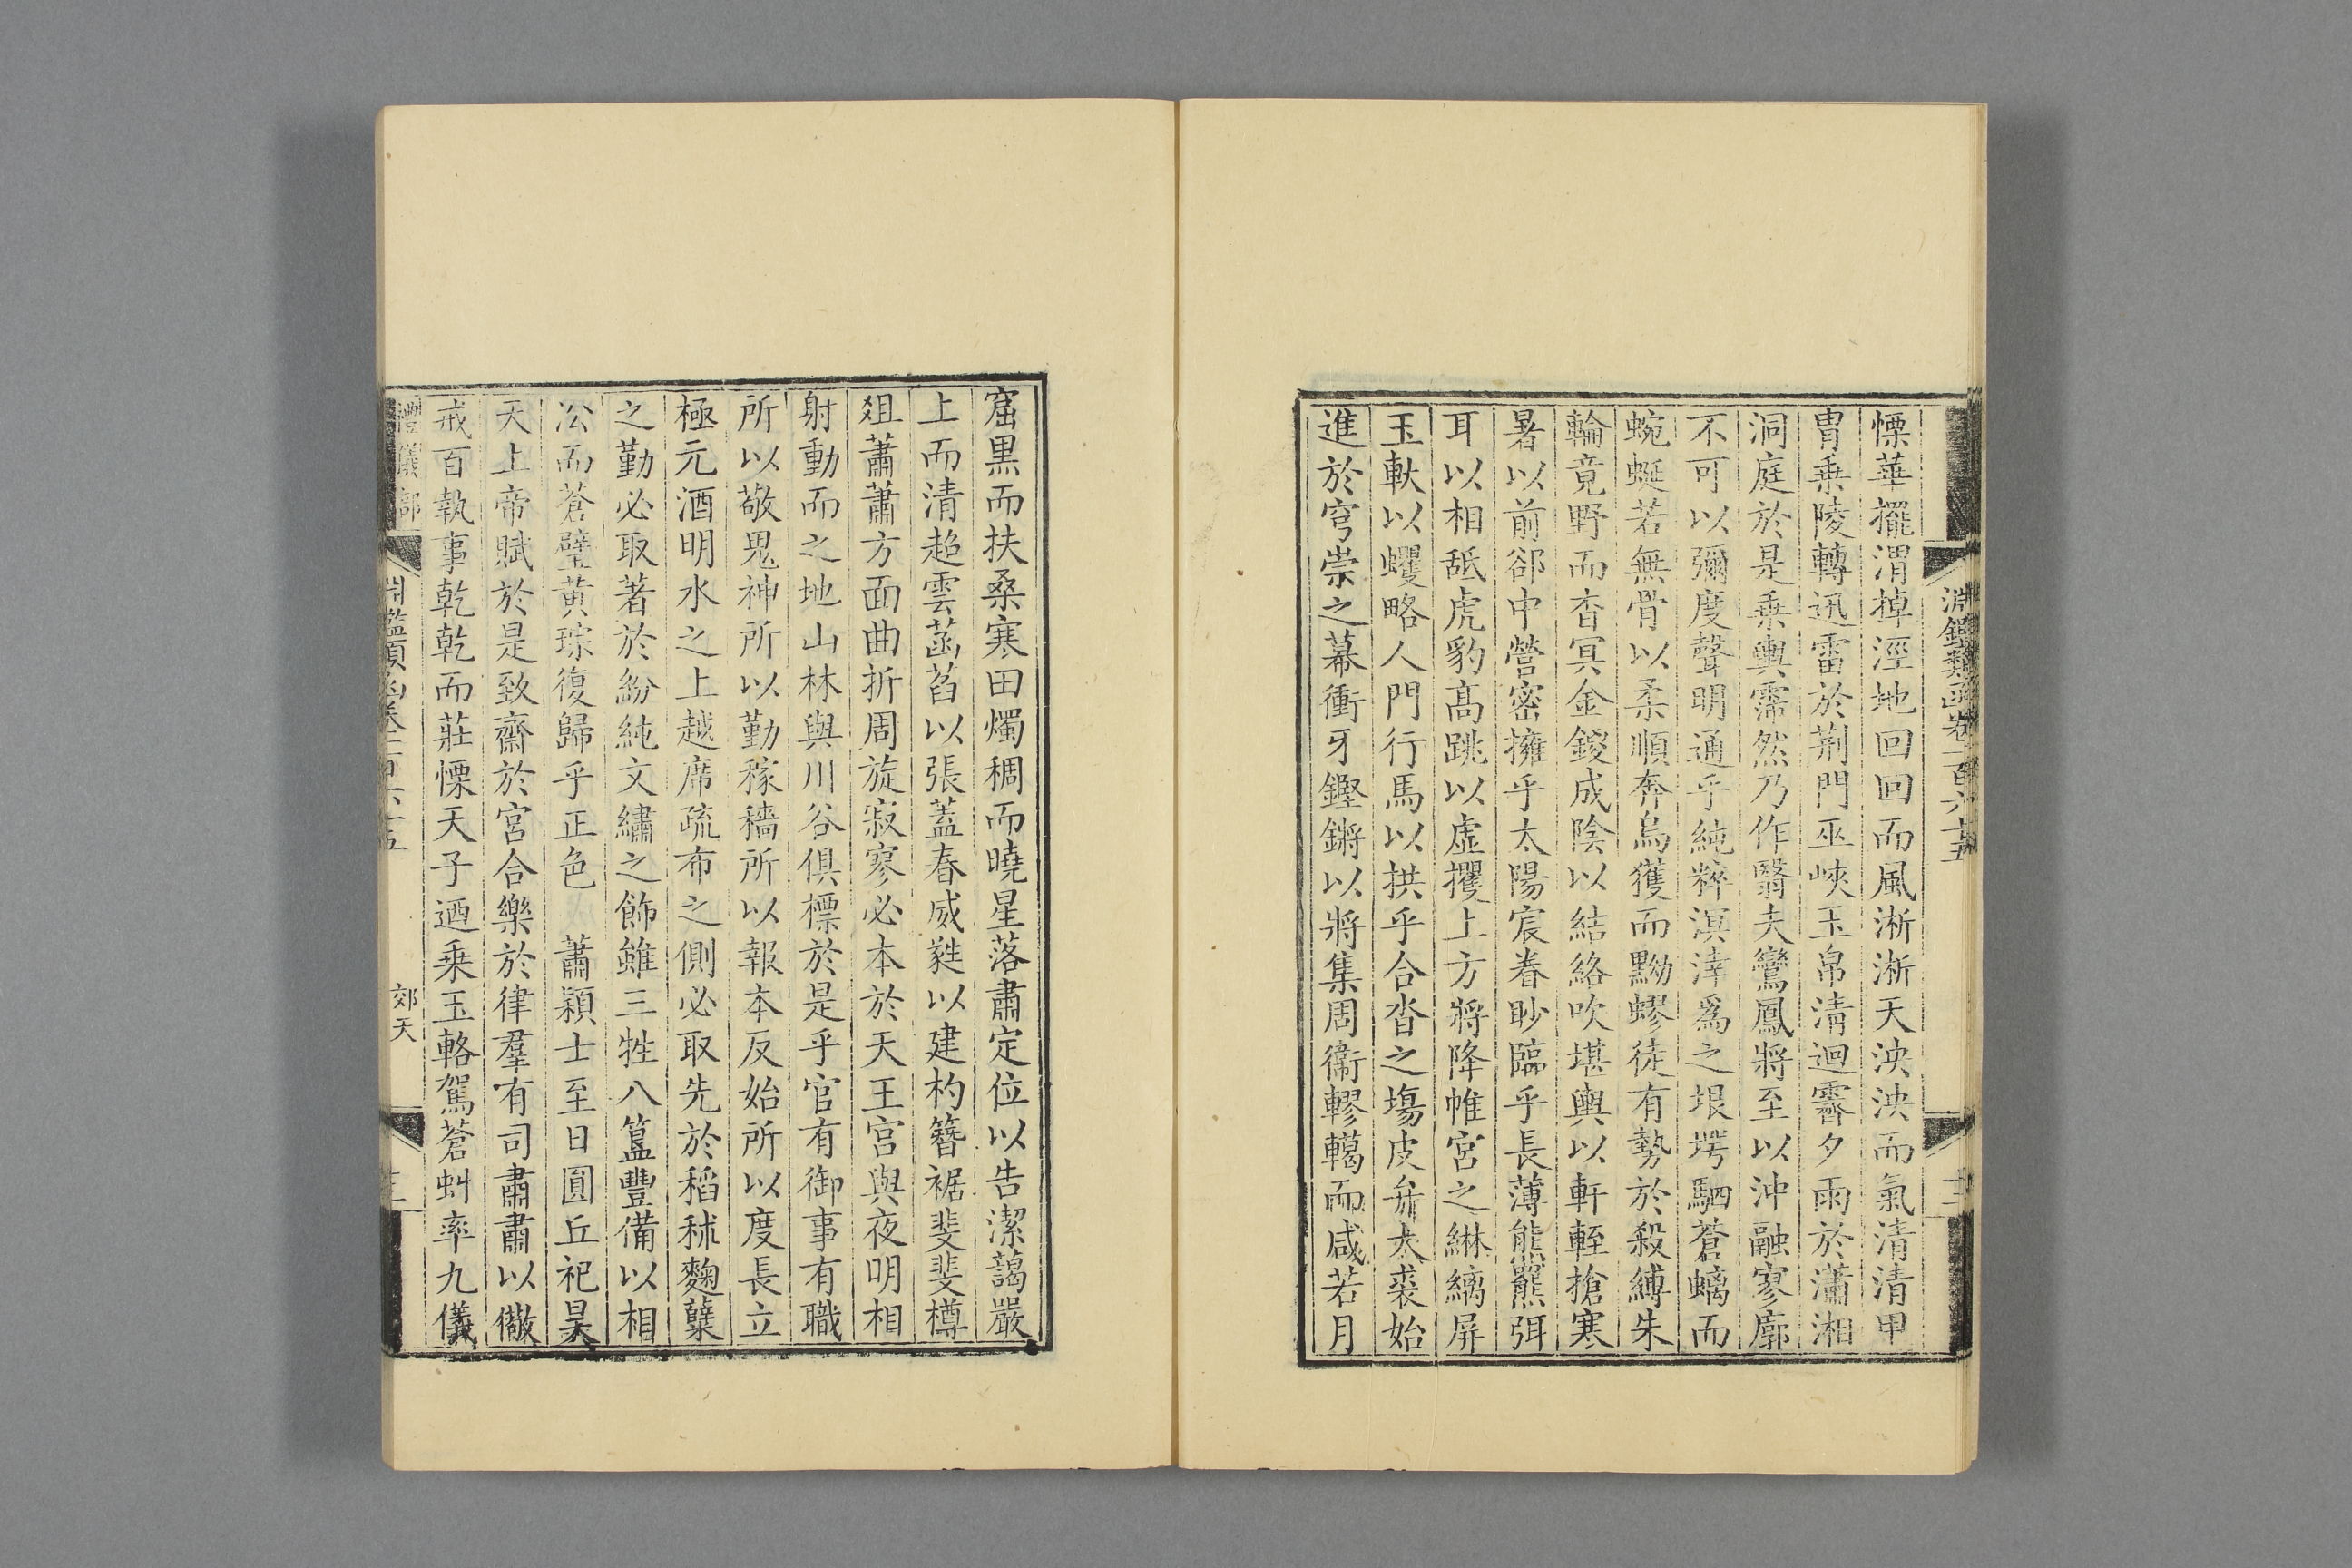 淵鑑類函卷一百六十五
十二
慄華擺渭掉涇地回回而風淅淅天泱泱而氣清清甲
冑乗陵轉迅雷於荆門巫峽玉帛清迴霽夕雨於瀟湘
洞庭於是乗輿霈然乃作翳夫鸞鳳將至以沖融寥廓
不可以彌度聲明通乎純粹溟涬爲之垠堮駟蒼螭而
蜿蜒若無骨以柔順奔烏獲而黝蟉徒有勢於殺縛朱
輪竟野而杳冥金鍐成陰以結絡吹堪輿以軒輊搶寒
暑以前郤中營密擁乎太陽宸眷眇臨乎長薄熊羆弭
耳以相舐虎豹髙跳以虚攫上方將降帷宮之綝縭屏
玉軑以蠼略人門行馬以拱乎合沓之塲皮弁大裘始
進於穹崇之幕衝牙鏗鏘以將集周衞轇轕而咸若月
窟黒而扶桑寒田燭稠而曉星落肅定位以告潔藹嚴
上而清超雲菡萏以張蓋春威蕤以建杓簪裾斐斐樽
俎蕭蕭方面曲折周旋寂寥必本於天王宮與夜明相
射動而之地山林與川谷俱標於是乎官有御事有職
所以敬鬼神所以勤稼穡所以報本反始所以度長立
極元酒明水之上越席疏布之側必取先於稻秫麴糵
之勤必取著於紛純文繡之飾雖三牲八簋豐備以相
沿而蒼璧黃琮復歸乎正色　蕭頴士至日圓丘祀昊
天上帝賦於是致齋於宮合樂於律羣有司肅肅以儆
戒百執事乾乾而莊慄天子迺乗玉輅駕蒼虯率九儀
禮儀部
淵鑑類函卷一百六十五
郊天